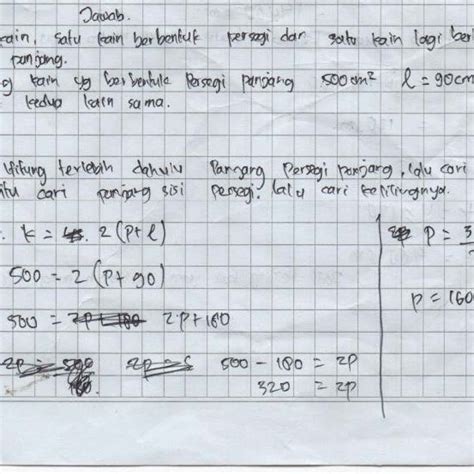 Jawab.
kain, satu kain berbentuk persegi dan satu kain lagi ber
panjang.
g kain yg berbentuk Persegi panjang 500cm² l = 90cm
kedua kain sama.
Hitung terlebih dahulu Panjang Persegi panjang, lalu cari
itu cari panjang sisi persegi, lalu cari kelilingnya.
k = 2 (p+l)
500 = 2 (p+90)
500 = 2p+180
500 - 180 = 2p
320 = 2p
p = 3
p = 160